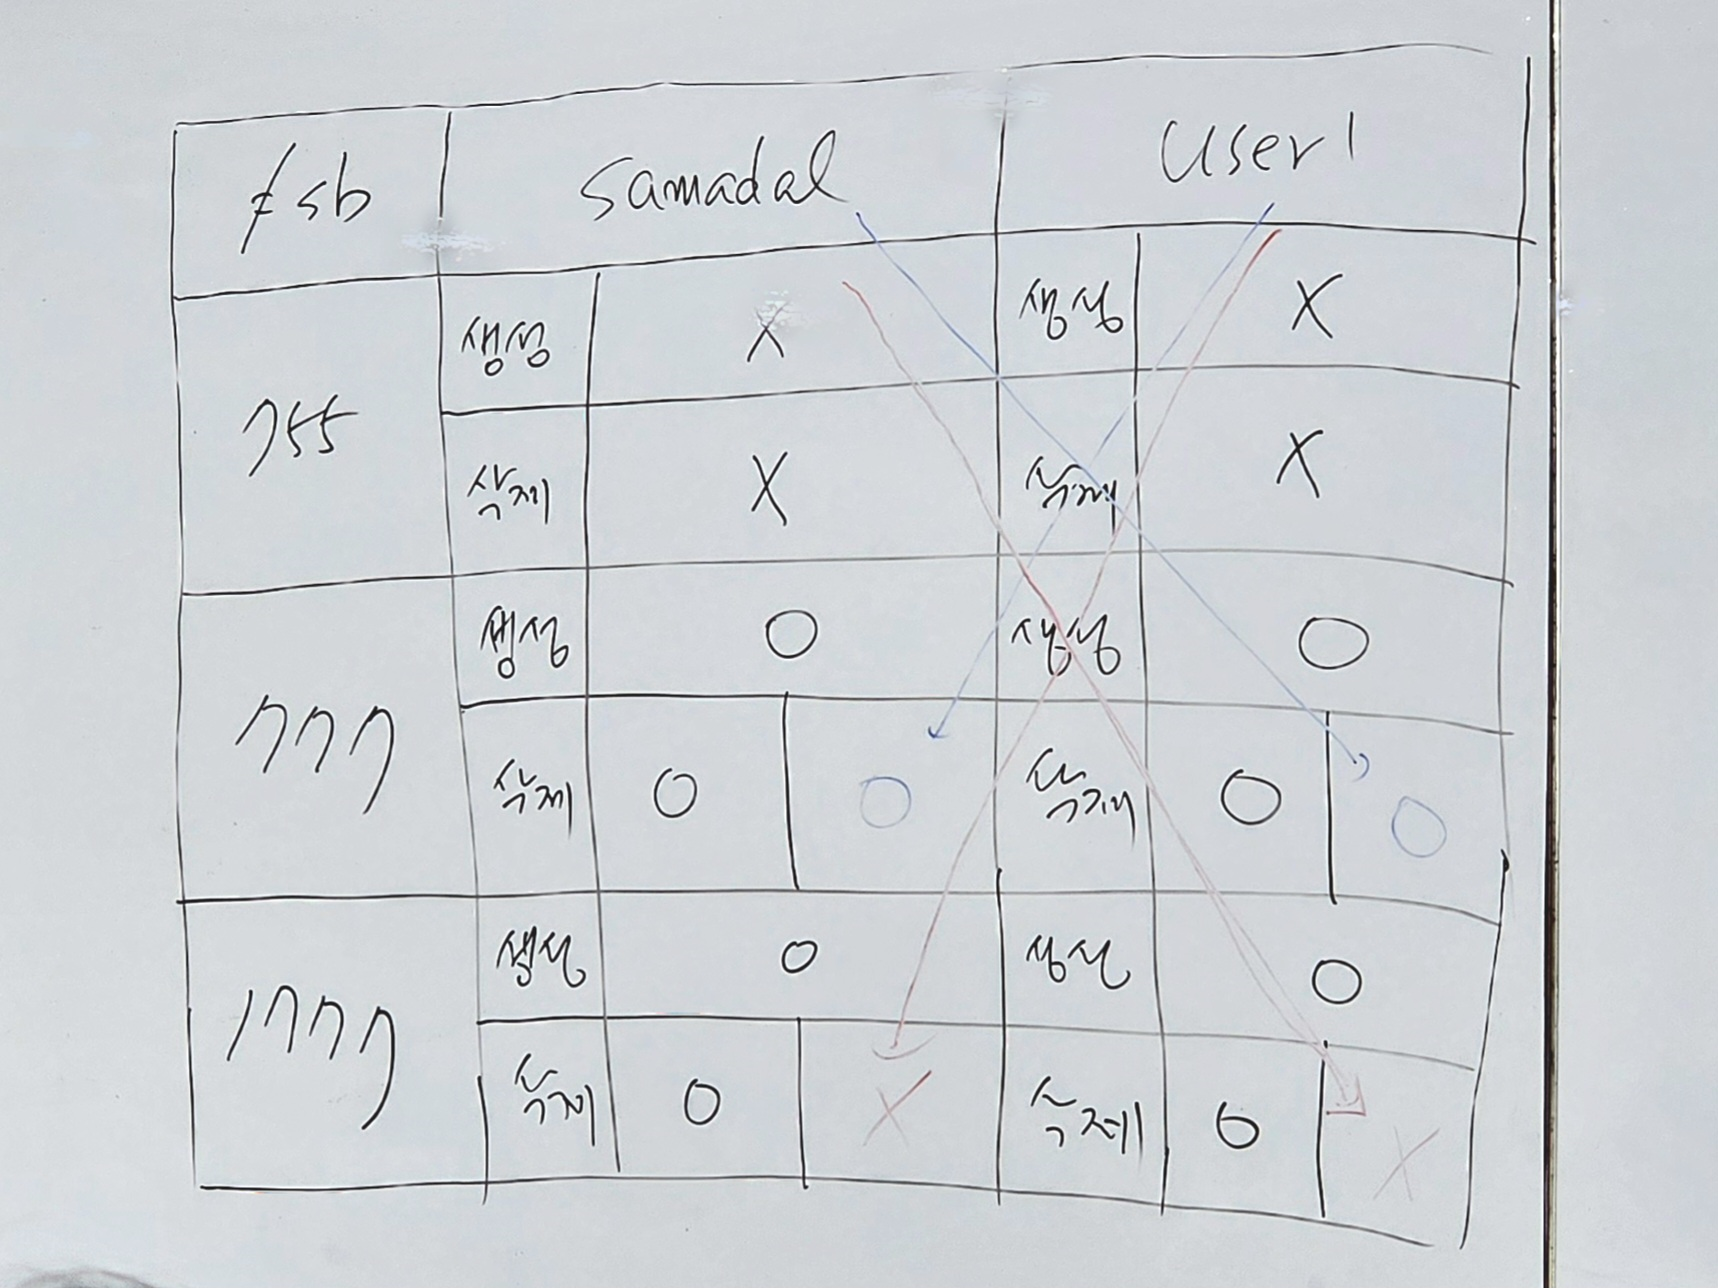 fsb samadal user1
755 생성 X 생성 X
삭제 X 삭제 X
777 생성 O 생성 O
삭제 O O 삭제 O O
1777 생성 O 생성 O
삭제 O X 삭제 O X